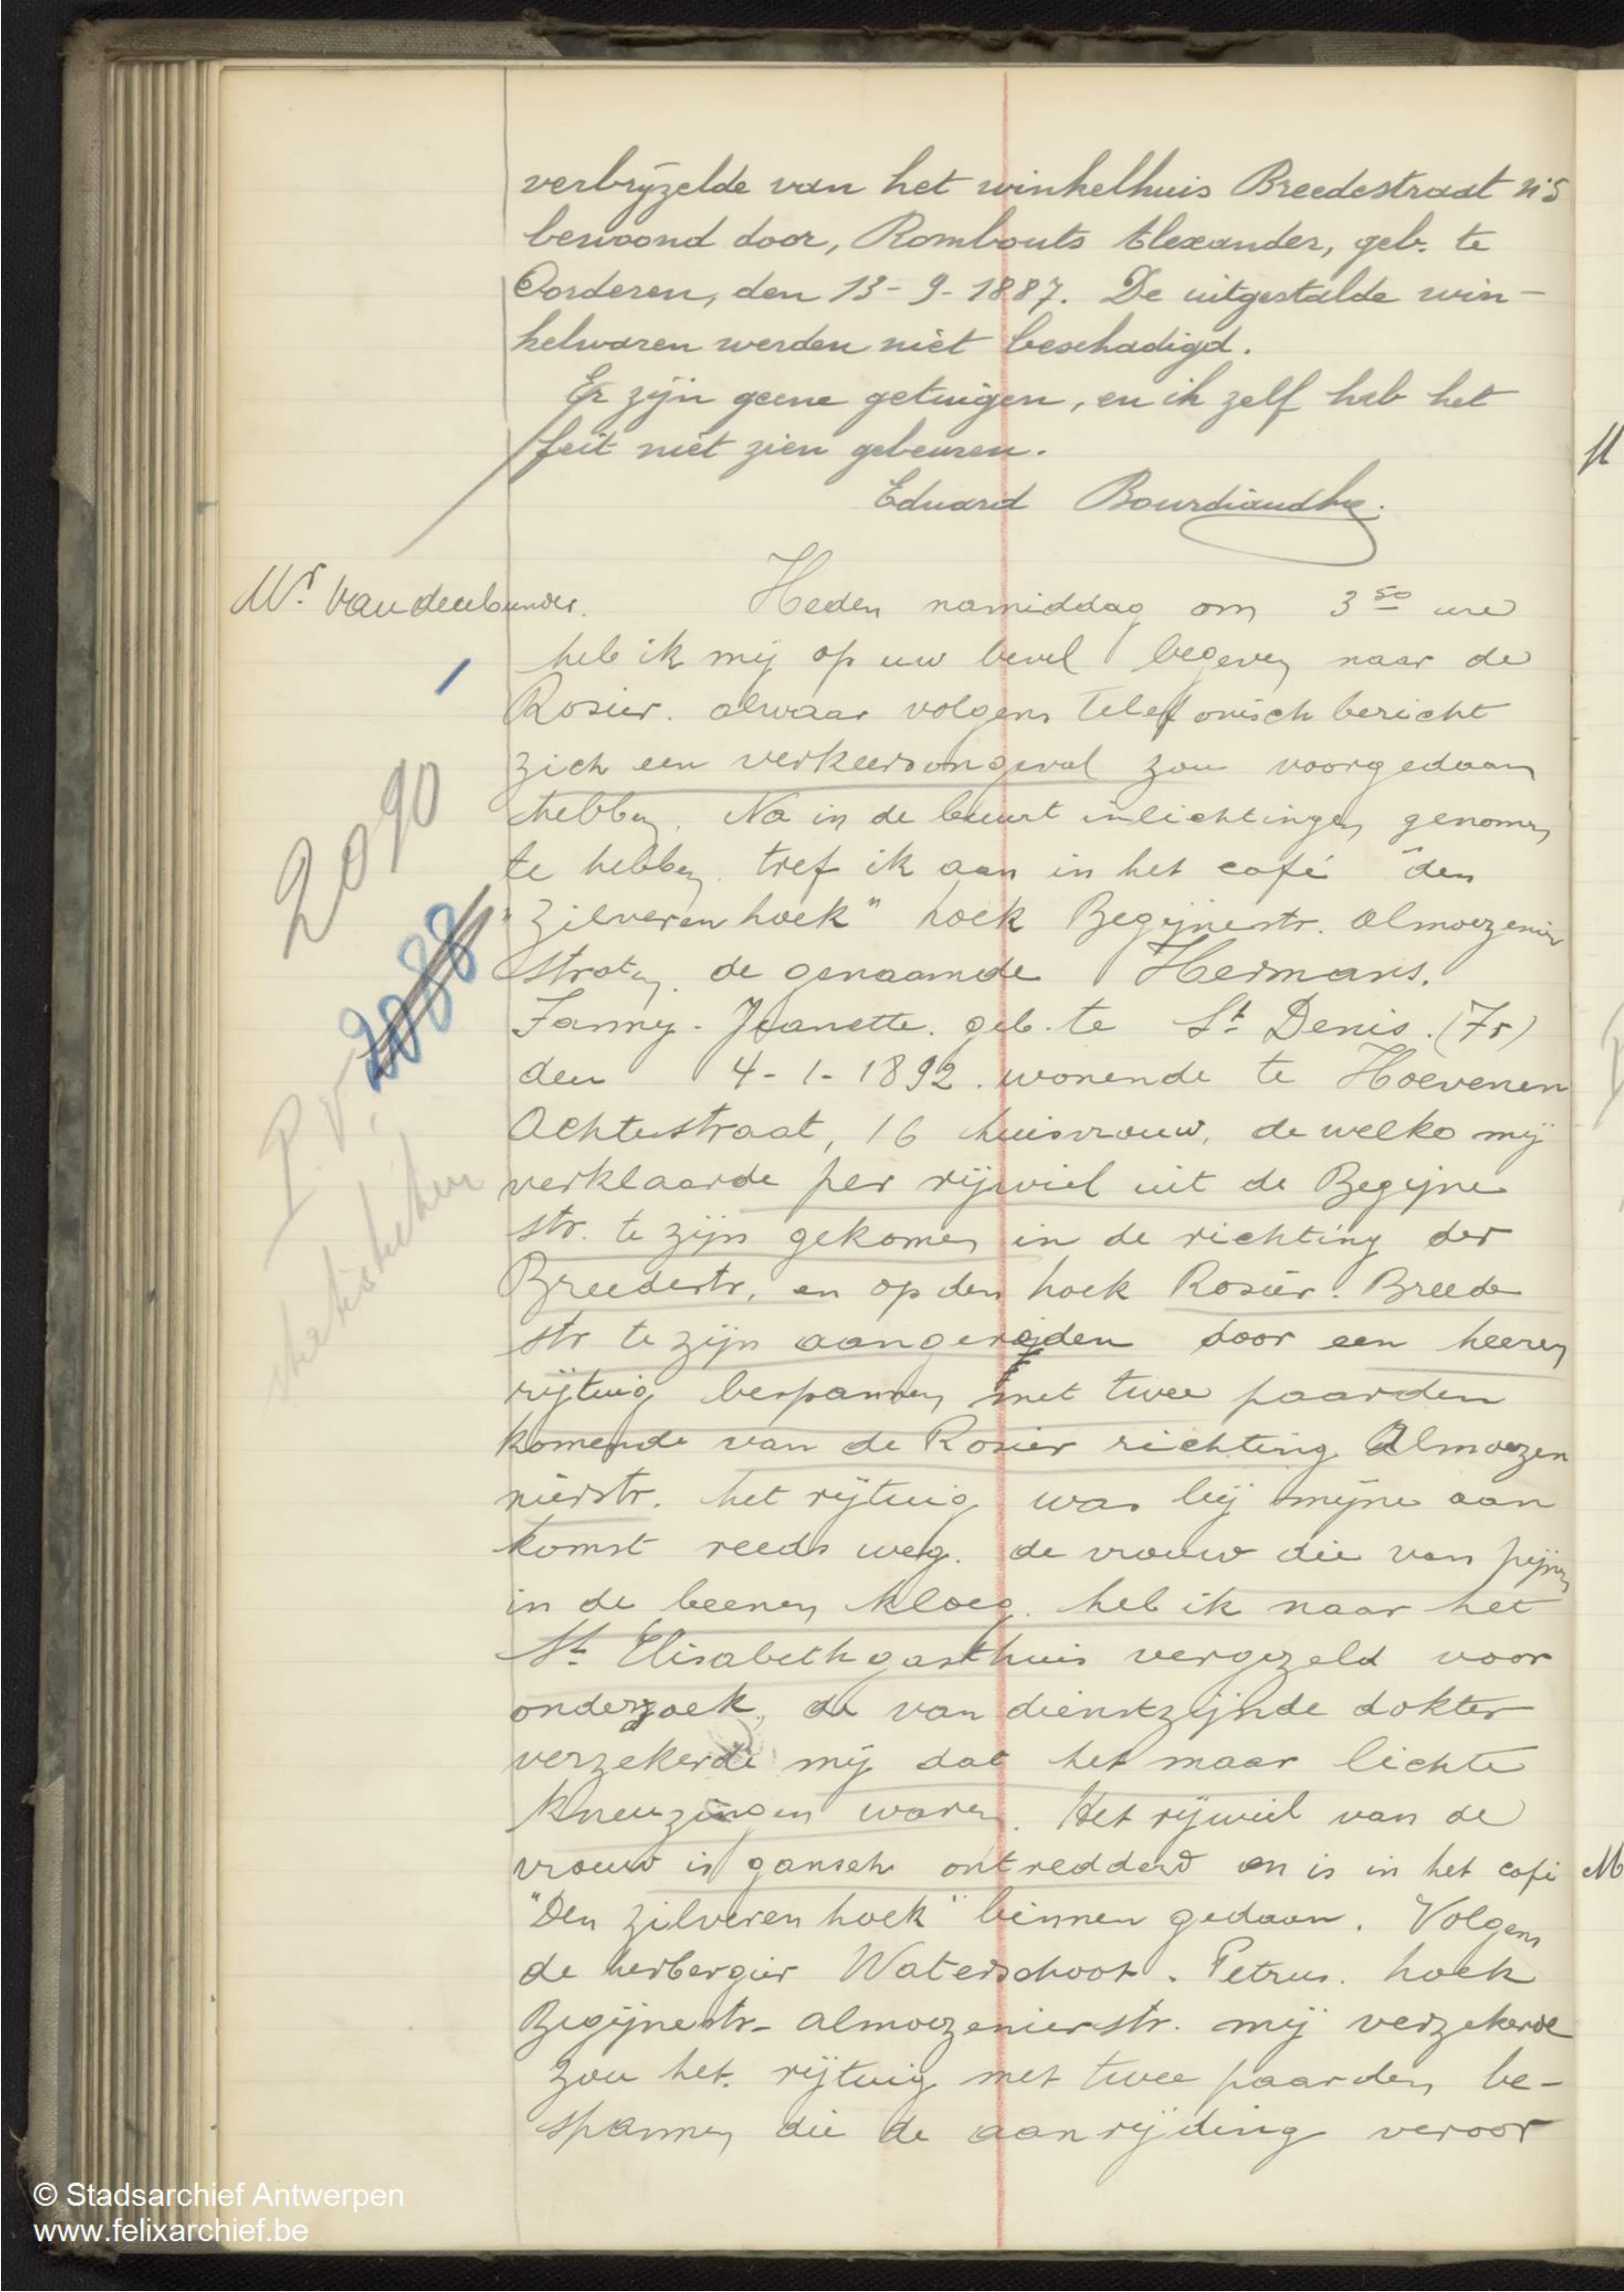 verbrijzelde van het winkelhuis Breedestraat n:5
bewoond door, Rombouts Alexander, geb. te
Oorderen, den 13-9-1887. De uitgestalde win-
kelwaren werden niet beschadigd.
Er zijn geene getuigen, en ik zelf heb het
feit niet zien gebeuren.
Eduard
Heden namiddag om 3 50 ure
heb ik mij op uw bevel begeven naar de
Rosier. alwaar volgens telefonisch bericht
zich een verkeersongeval zou voorgedaan
hebben. Na in de buurt inlichtingen genomen
te hebben. tref ik aan in het café "den
"Zilveren hoek" hoek Begijnestr. Almoezenier
straten. de genaamde Hermans.
Fanny-Jeanette. geb. te St Denis. (Fr)
den 4-1-1892. wonende te Hoevenen
Achterstraat, 16 huisvrouw, de welke mij
verklaarde per rijwiel uit de Begijne
str. te zijn gekomen in de richting der
Breedestr, en op den hoek Rosier. Breede
str te zijn aangereden door een heeren
rijtuig bespannen met twee paarden
komende van de Rosier richting Almoezen
nierstr. het rijtuig was bij mijne aan
komst reeds weg. de vrouw die van pijnen
in de beenen kloeg. heb ik naar het
St. Elisabethgasthuis vergezeld voor
onderzoek, de van dienstzijnde dokter
verzekerde mij dat het maar lichte
kneuzingen waren. Het rijwiel van de
vrouw is gansch ontredderd en is in het café
"Den zilveren hoek" binnen gedaan. Volgens
de herbergier Waterschoot. Petrus. hoek
Begijnestr- Almoezenierstr. mij verzekerde
zou het. rijtuig met twee paarden be-
spannen die de aanrijding veroor
2090
2088
P.V.
M
© Stadsarchief Antwerpen
www.felixarchief.be